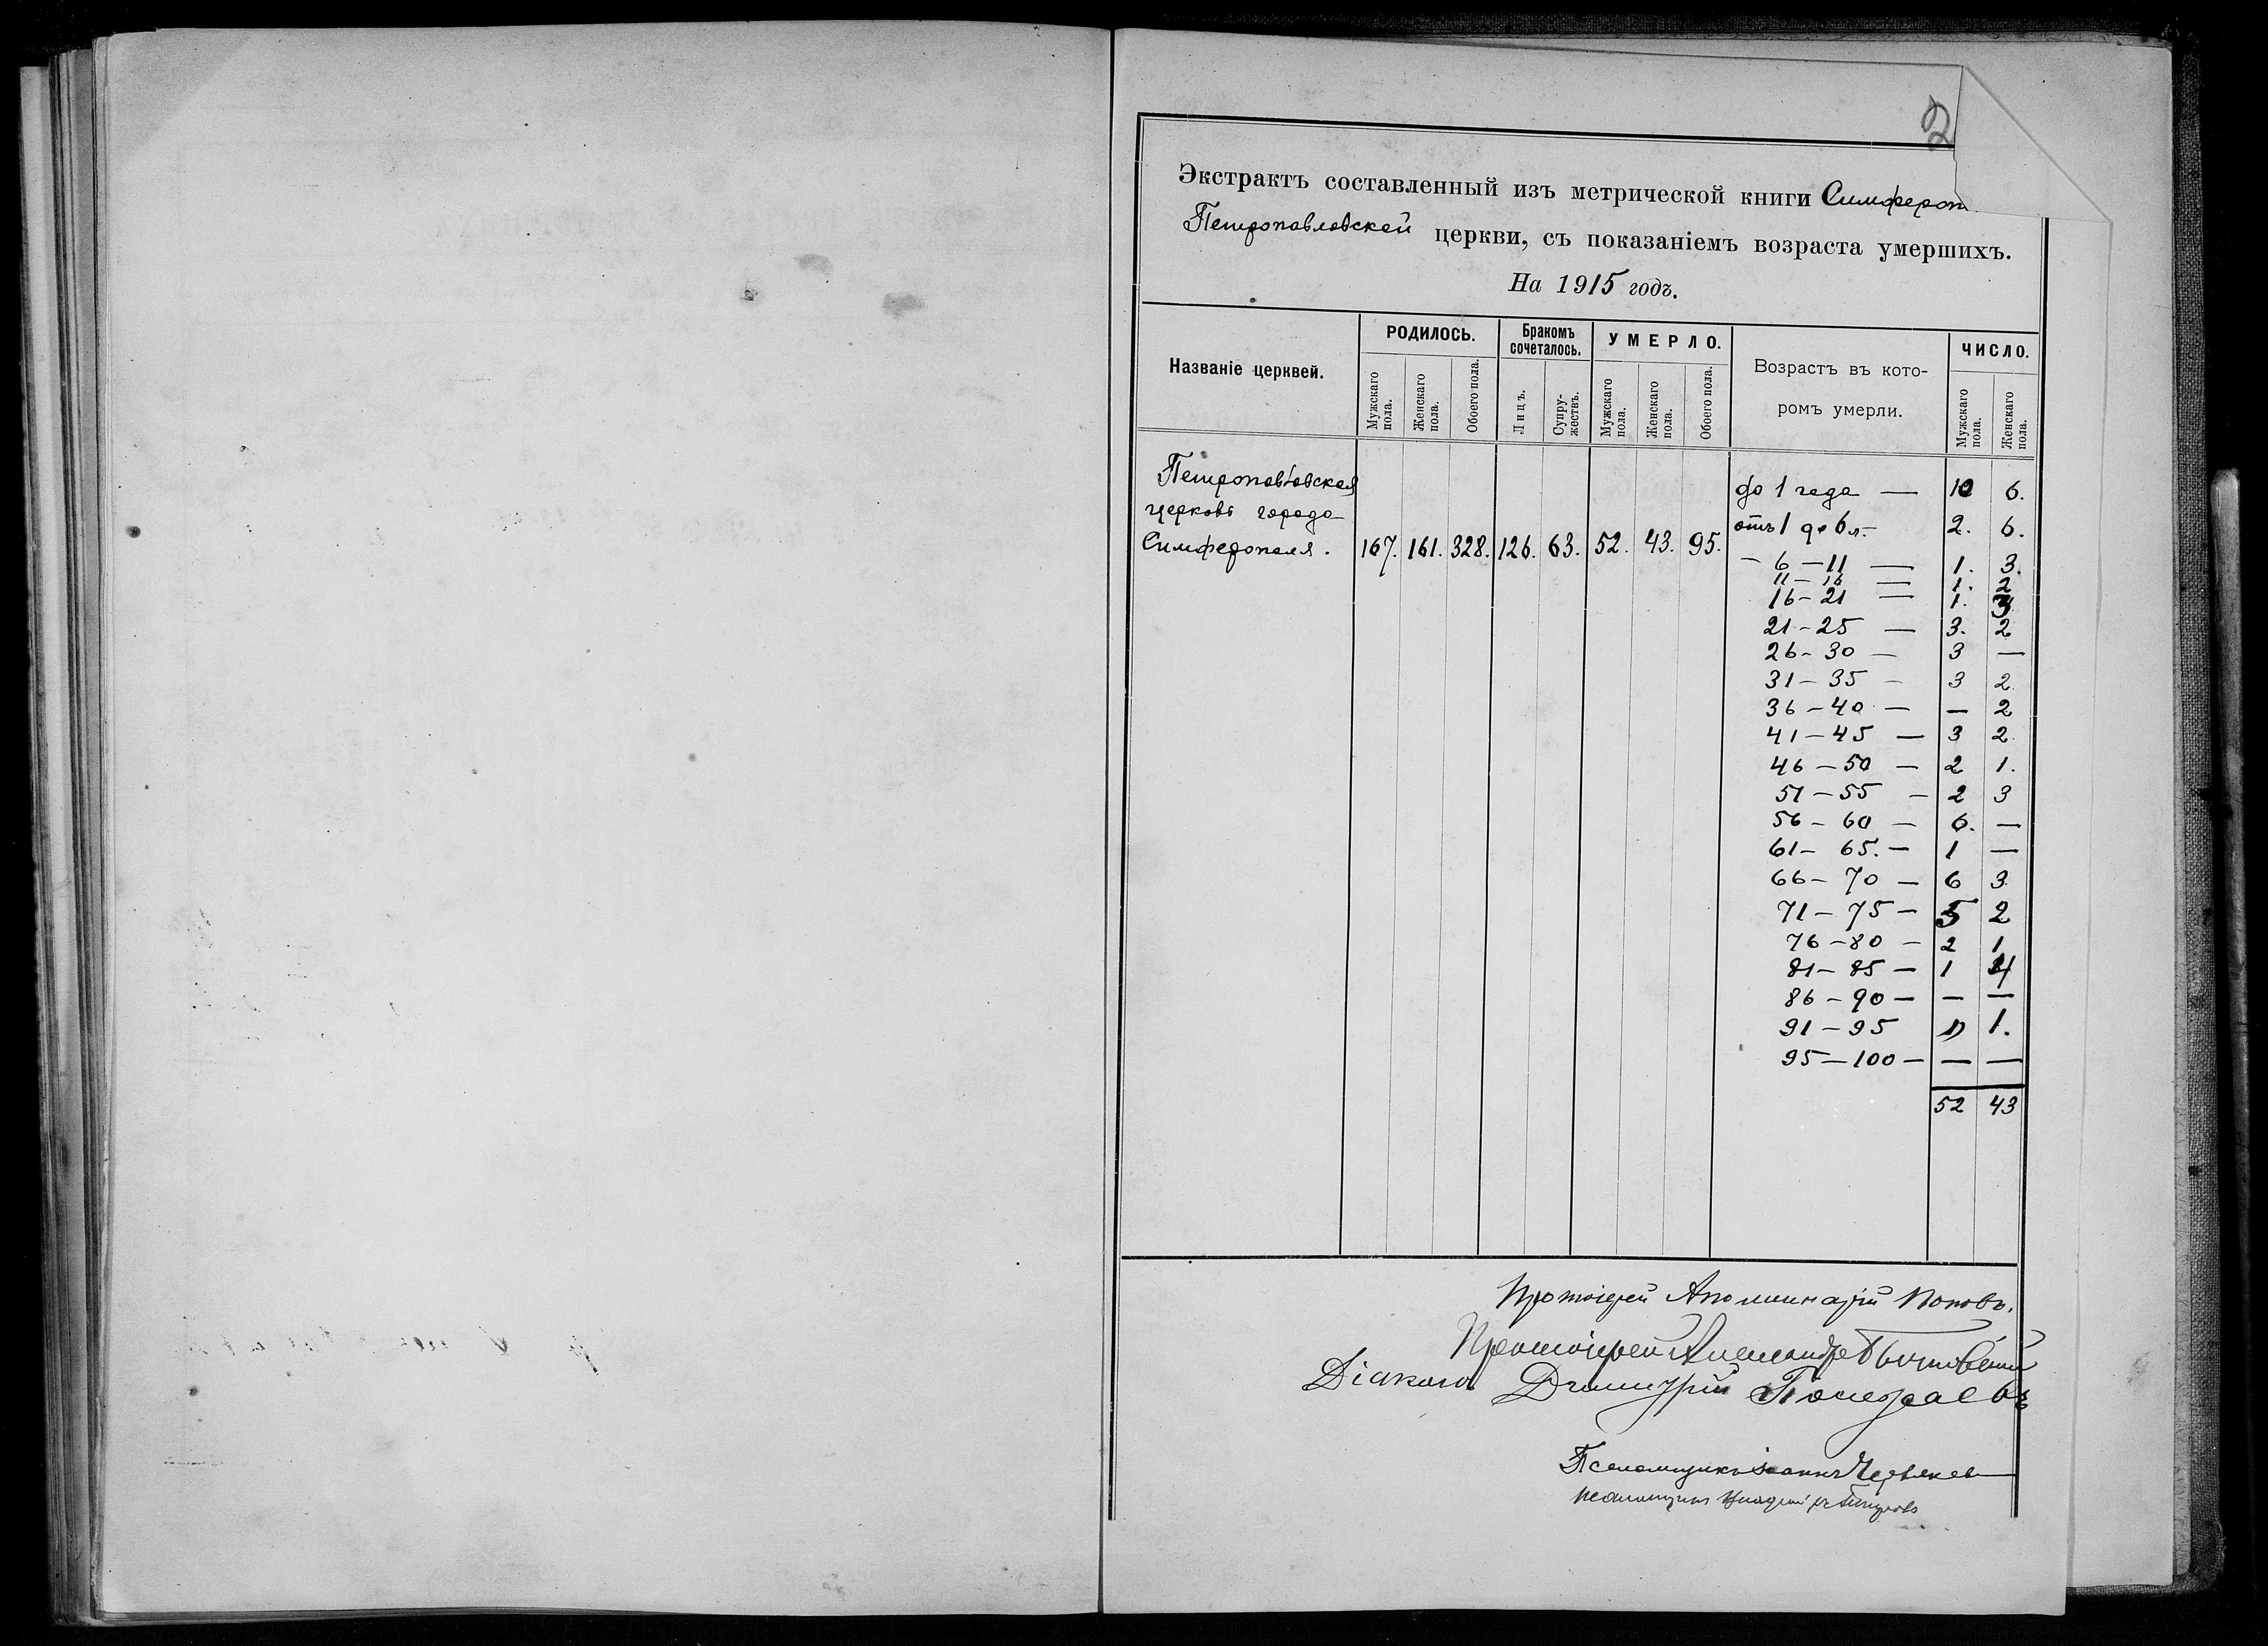 2
Экстрактъ составленный изъ метрической книги Симфероп
Петропавловской церкви, съ показаніемъ возраста умершихъ.
На 1915 годъ.
Названіе церквей.
РОДИЛОСЬ.
Мужскаго пола.
Женскаго пола.
Обоего пола.
Бракомъ сочеталось.
Лицъ.
Супружествъ.
УМЕРЛО.
Мужскаго пола.
Женскаго пола.
Обоего пола.
Возрастъ въ кото-
ромъ умерли.
ЧИСЛО.
Мужскаго пола.
Женскаго пола.
Петропавловская
церковь города
Симферополя. 167. 161. 328. 126. 63. 52. 43. 95.
до 1 года — 10 6.
отъ 1 до 6 л. — 2. 6.
— 6 — 11 — 1. 3.
11 — 16 — 1. 2
16 — 21 — 1. 3
21 — 25 — 3. 2
26 — 30 — 3 —
31 — 35 — 3 2
36 — 40 — — 2
41 — 45 — 3 2
46 — 50 — 2 1.
51 — 55 — 2 3
56 — 60 — 6. —
61 — 65. — 1 —
66 — 70 — 6 3
71 — 75 — 5 2
76 — 80 — 2 1
81 — 85 — 1 4
86 — 90 — — —
91 — 95 1.
95 — 100 — — —
52 43
Протоіерей Аполлинарій Поповъ.
Протоіерей Александръ
Діаконъ Димитрій
Псаломщикъ Іоаннъ Червяковъ
Псаломщикъ